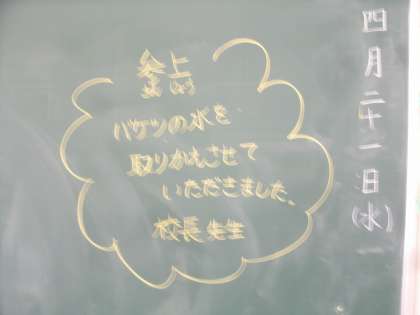 四月二十一日(水)
参上
バケツの水を
取りかえさせて
いただきました。
校長先生